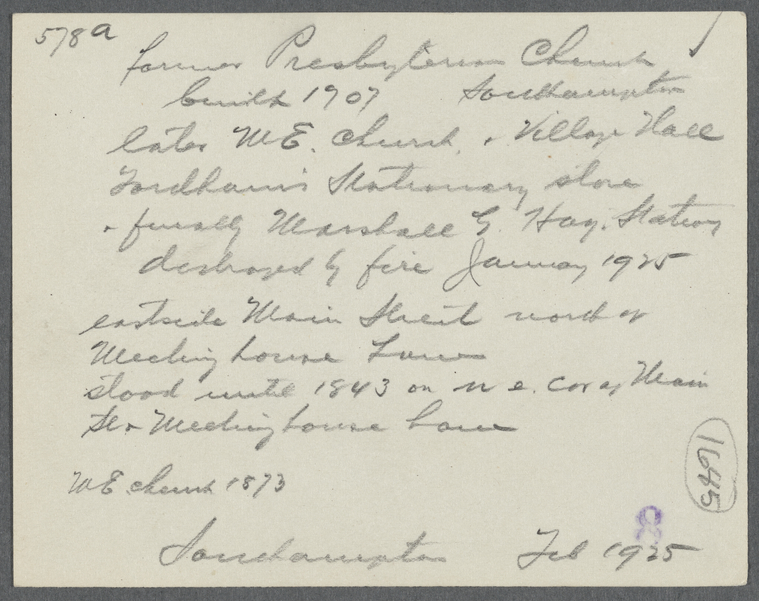 578a
former Presbyterian Church
built 1707 Southampton
later M.E. Church, + Village Hall
Fordham's Stationary store
+ finally Marshall G. Hay, Station
destroyed by fire January 1925
eastside Main Street north of
Meeting house Lane
stood until 1843 on n e. cor of Main
St + Meeting house Lane
M E church 1873
1645
8
Southampton Feb 1925